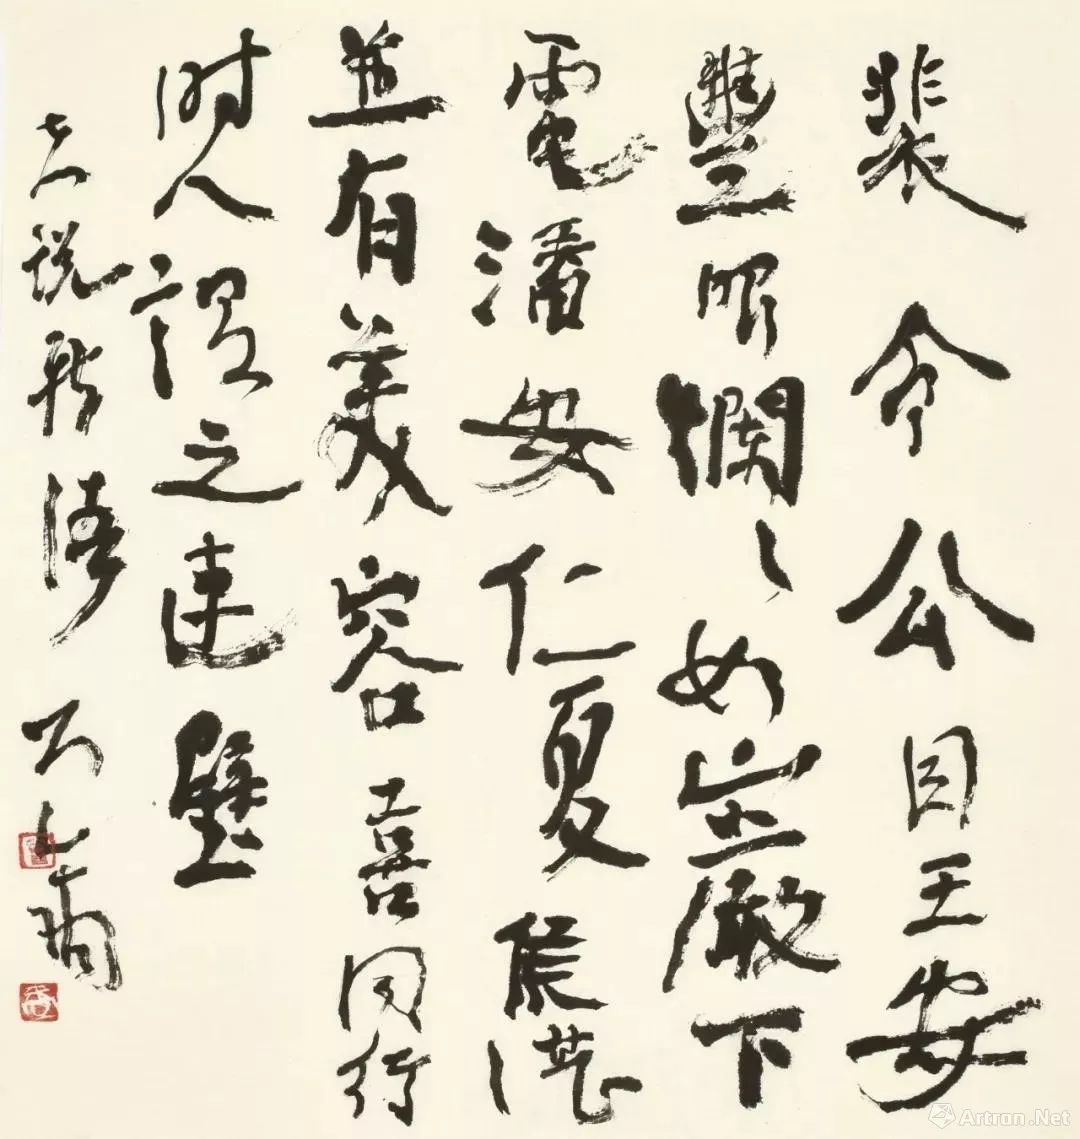 裴令公目王安
豐眼爛〻如岩廠下
電潘安仁夏侯湛
並有美容喜同行
時人謂之連璧
世說新語
Artron.Net